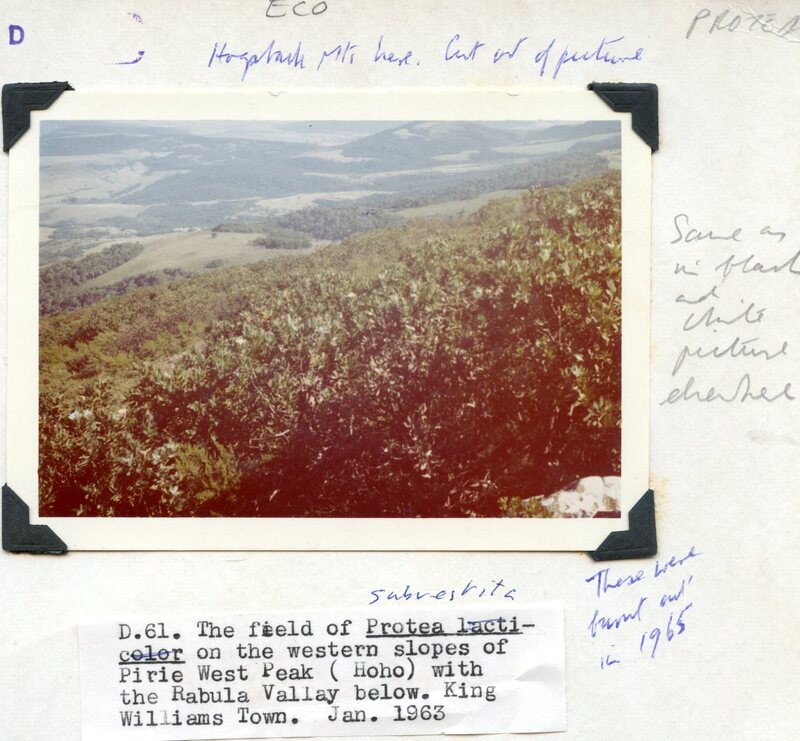 ECO
D
PROTEA
Hogsback Mts here. Cut out of picture
Same as
in black
and
white
picture
elsewhere
subvestita
These were
burnt out
in 1965
D.61. The field of Protea lacti-
color on the western slopes of
Pirie West Peak ( Hoho) with
the Rabula Vallay below. King
Williams Town. Jan. 1963